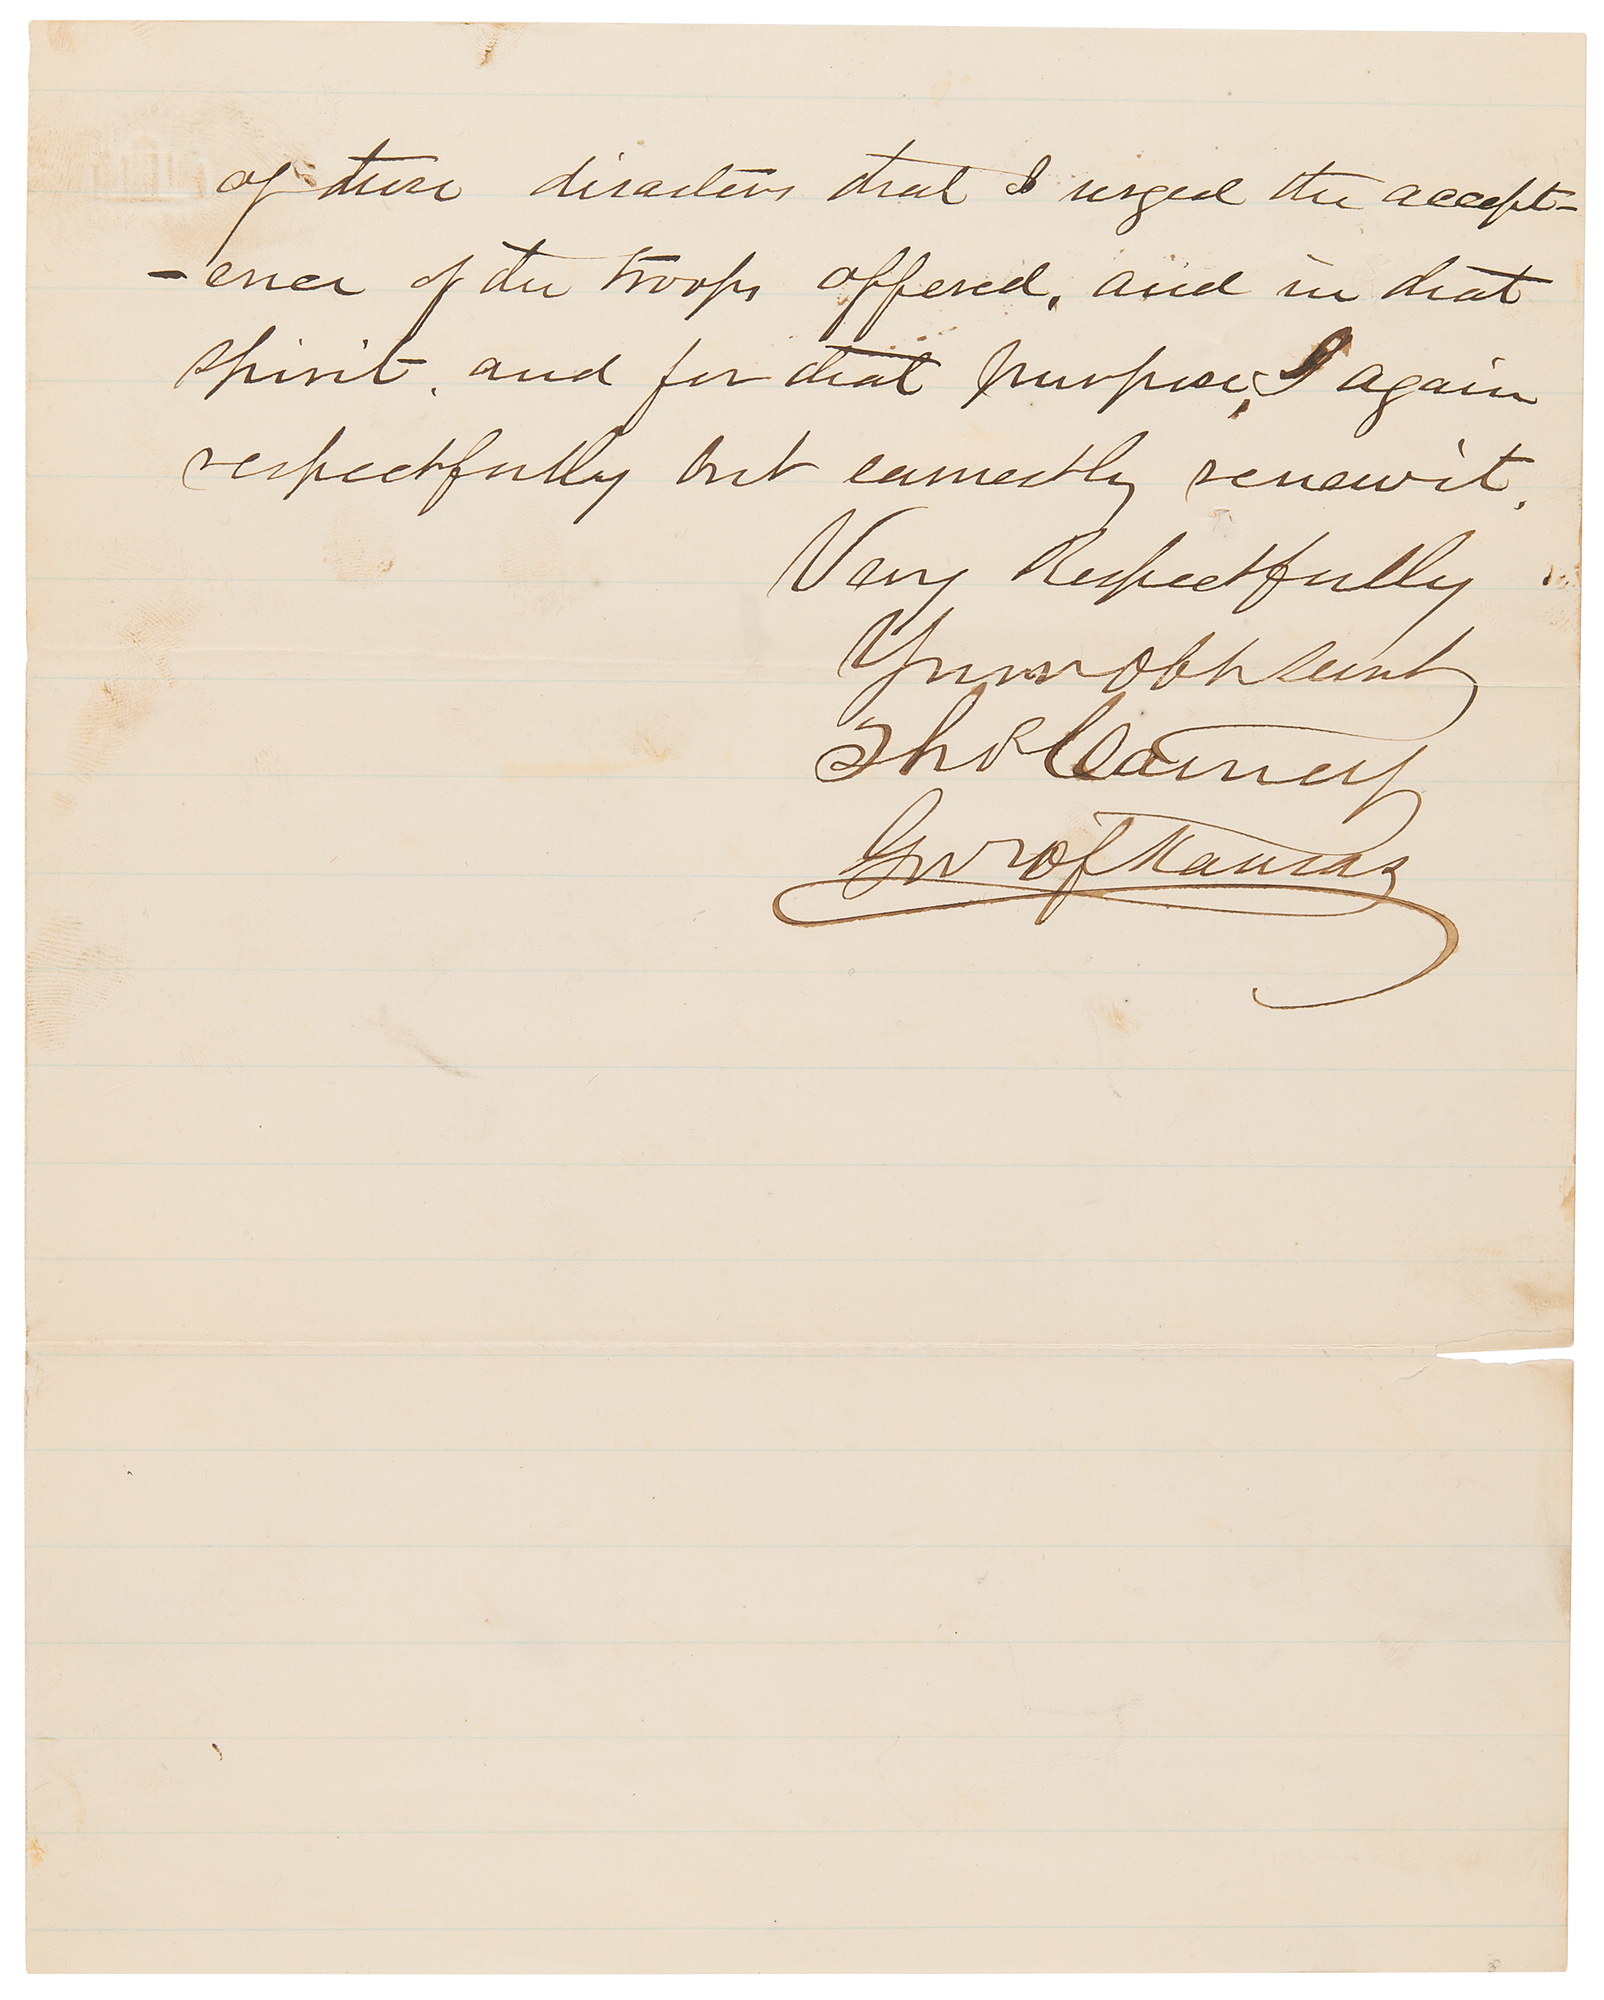 of these disasters that I urged the accept-
-ence of the troops offered, and in that
spirit, and for that purpose, I again
respectfully but earnestly renew it.
Very Respectfully
Your obt servt
Tho Carney
Gov of Kansas